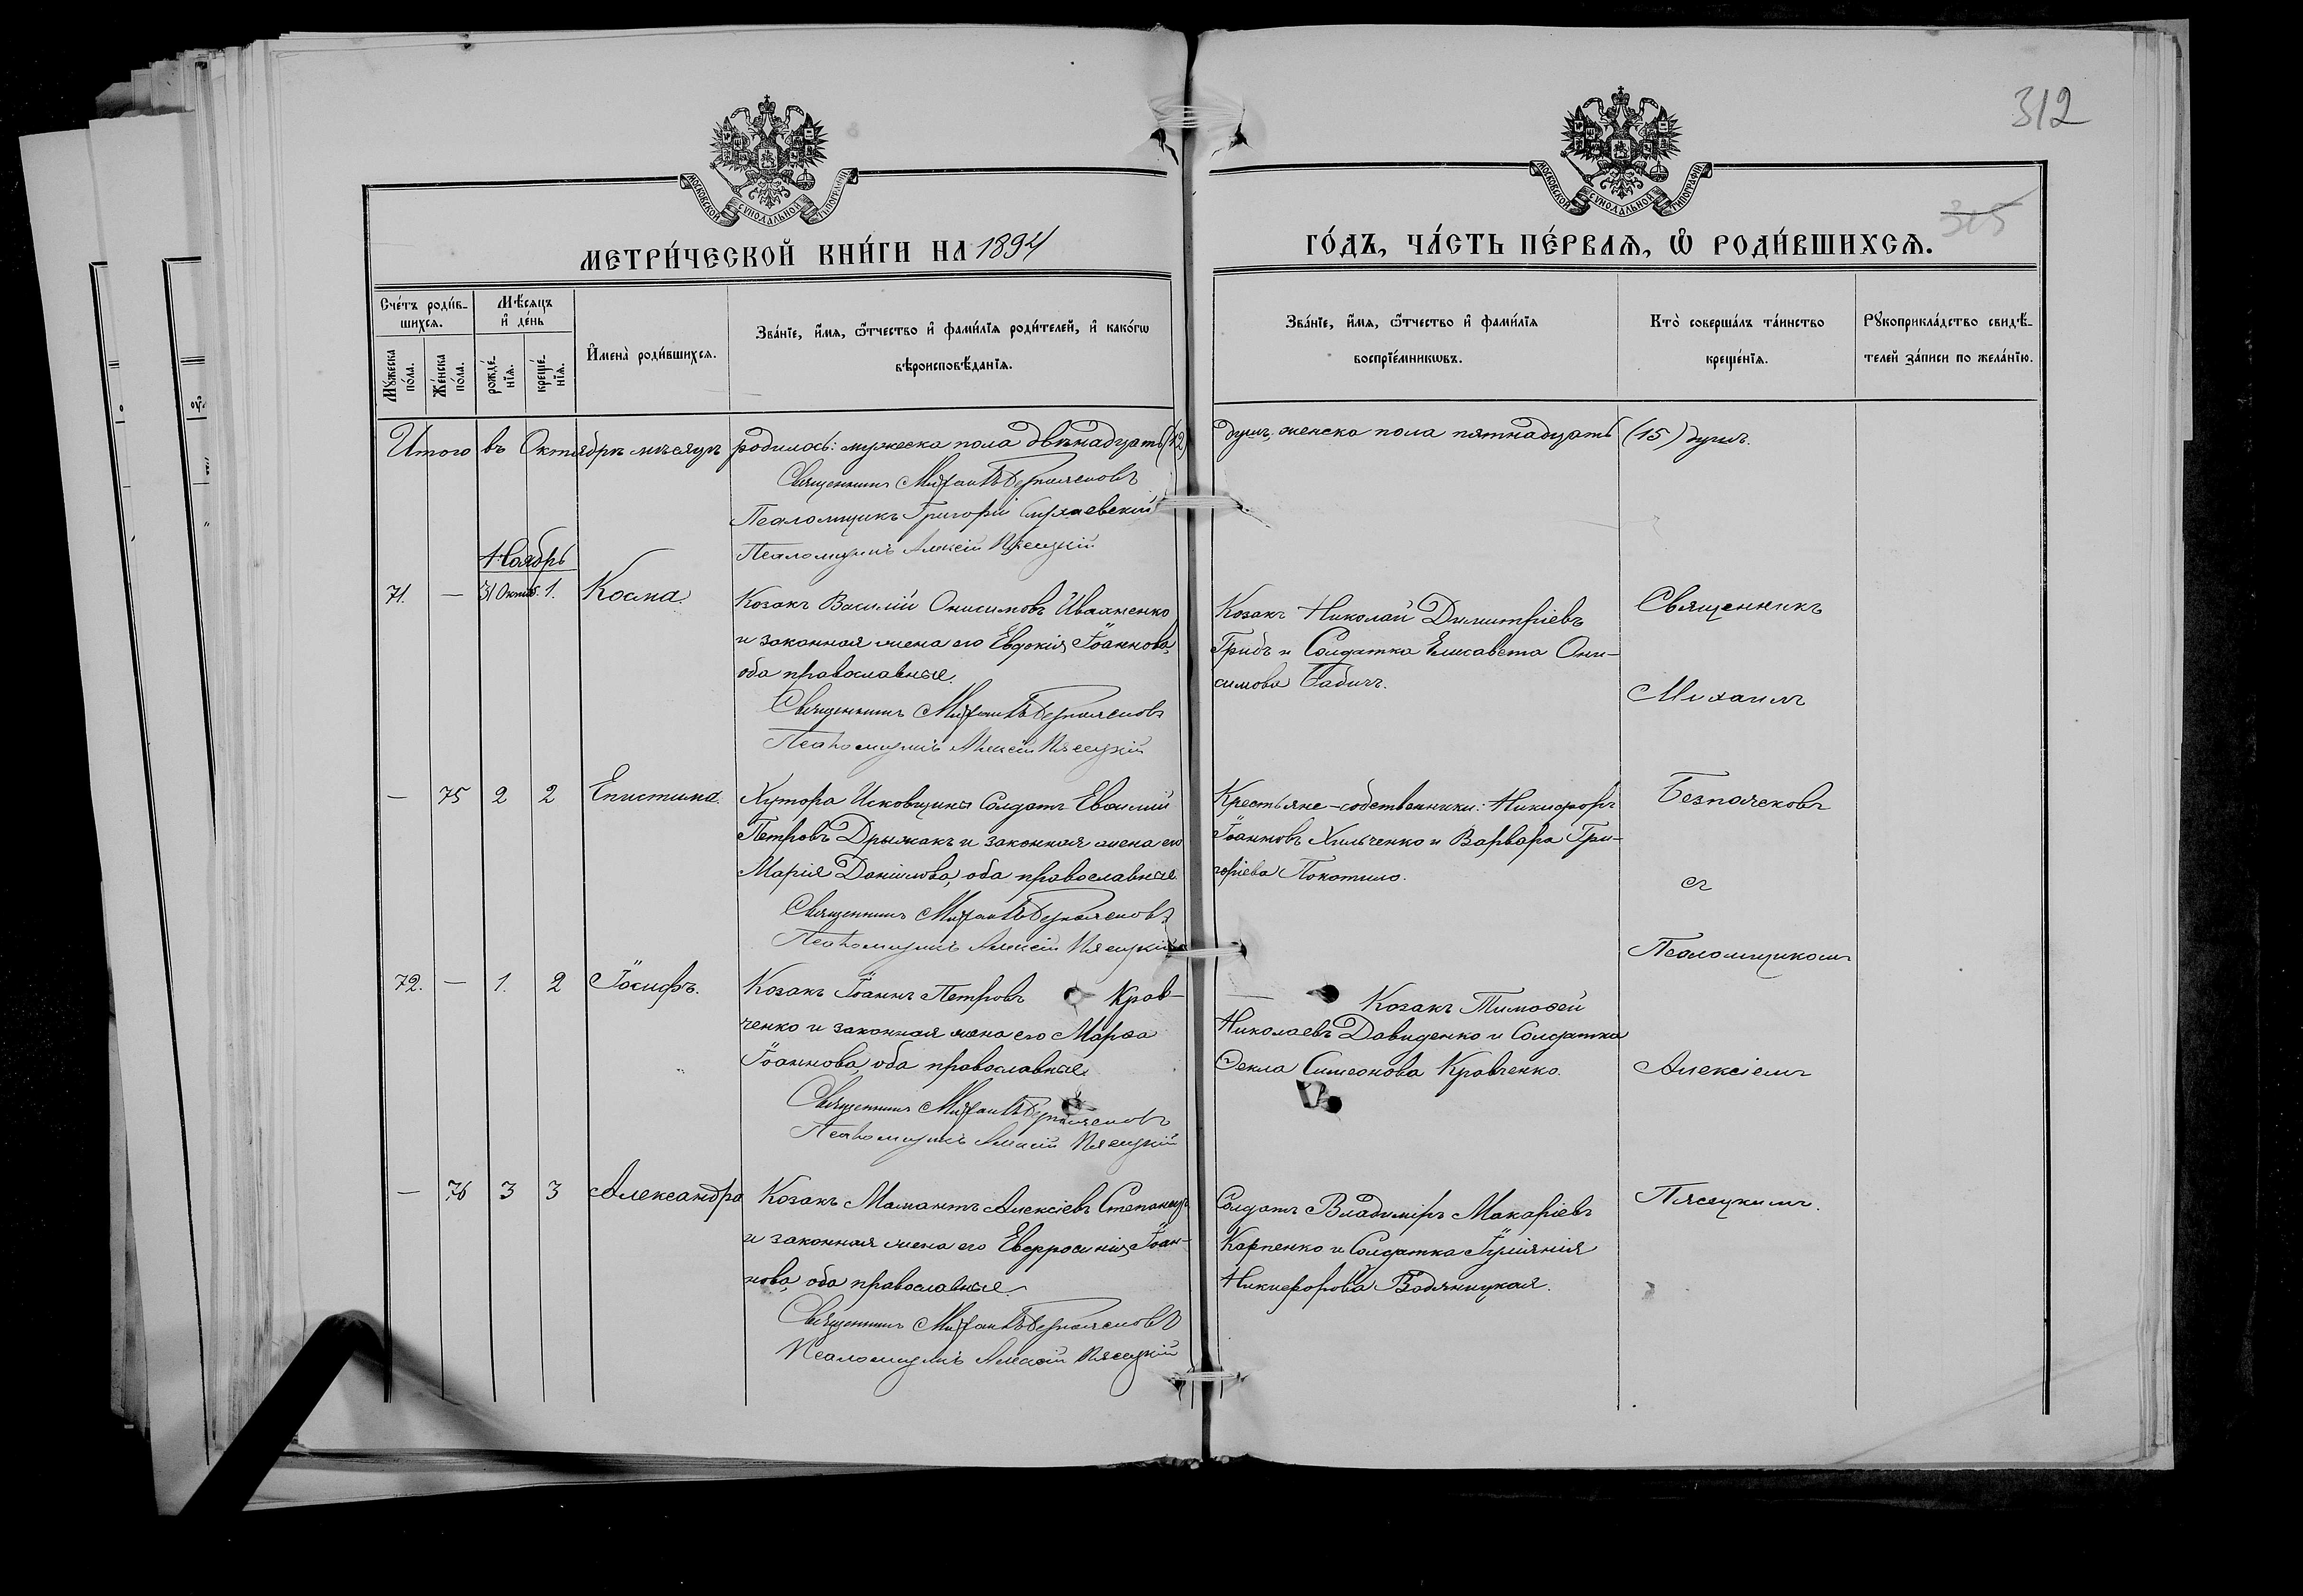 312
315
МОСКОВСКОЙ СѴНОДАЛЬНОЙ ТИПОГРАФІИ
МОСКОВСКОЙ СѴНОДАЛЬНОЙ ТИПОГРАФІИ
МЕТРИ́ЧЕСКОЙ КНИ́ГИ НА 1894
ГО́ДЪ, ЧА́СТЬ ПЕ́РВАѦ, Ѽ РОДИ́ВШИХСѦ.
Сче́тъ роди́в-
шихсѧ.
Мѣ́сѧцъ
и҆ де́нь
Мꙋ́жеска по́ла.
Же́нска по́ла.
рожде́-
нїѧ.
креще́-
нїѧ.
И҆мена̀ роди́вшихсѧ.
Зва́нїе, и҆́мѧ, ѻ҆́тчество и҆ фами́лїѧ роди́телей, и҆ како́гѡ
вѣроисповѣ́данїѧ.
Зва́нїе, и҆́мѧ, ѻ҆́тчество и҆ фами́лїѧ
воспрїе́мникѡвъ.
Кто̀ соверша́лъ та́инство
креще́нїѧ.
Рꙋкоприкла́дство свидѣ́-
телей за́писи по жела́нїю.
Итого въ Октябрѣ мѣсяцѣ родилось: мужеска пола двѣнадцать (12) душъ, женска пола пятнадцать (15) душъ.
Священникъ Михаилъ Безпалчековъ
Псаломщикъ Григорій
Псаломщикъ Алексій Пясецкій
Ноябрь
71. — 31 Октяб. 1. Косма.
Козакъ Василій Онисимовъ Ивахненко
и законная жена его Евдокія Іоаннова,
оба православные.
Священникъ Михаилъ
Псаломщикъ Алексій Пясецкій
Козакъ Николай Димитріевъ
Грибъ и Солдатка Елисавета Они-
симова Бабичъ.
Священникъ
Михаилъ
— 75 2 2 Епистима.
Хутора Исковщины Солдатъ Евѳимій
Петровъ Дрыжакъ и законная жена его
Марія Даніилова, оба православные.
Священникъ Михаилъ
Псаломщикъ Алексій Пясецкій
Крестьяне-собственники: Никифоръ
Іоанновъ Хильченко и Варвара Гри-
горіева Покотило.
съ
Псаломщикомъ
72. — 1. 2 Іосифъ.
Козакъ Іоаннъ Петровъ Крав-
ченко и законная жена его Марѳа
Іоаннова, оба православные.
Священникъ Михаилъ
Псаломщикъ Алексій Пясецкій
Козакъ Тимоѳей
Николаевъ Давиденко и Солдатка
Ѳекла Симеонова Кравченко.
Алексіемъ
— 76 3 3 Александра
Козакъ Мамантъ Алексіевъ
и законная жена его Евфросинія Іоан-
нова, оба православные.
Священникъ Михаилъ
Псаломщикъ Алексій Пясецкій
Солдатъ Владиміръ Макаріевъ
Карпенко и Солдатка Іуліанія
Никифорова Водяницкая.
Пясецкимъ.